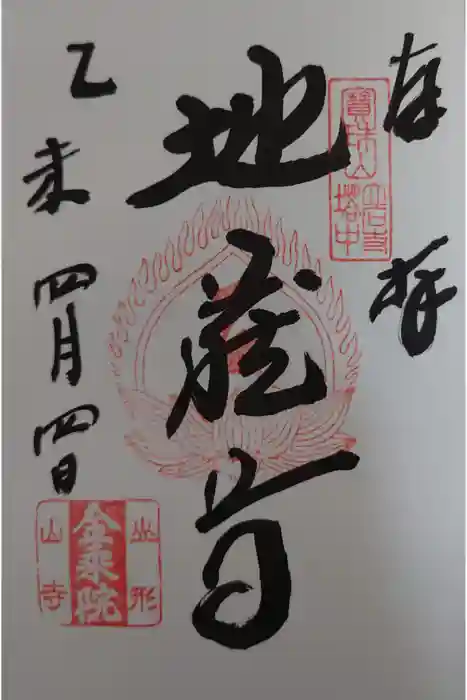 奉拝
寳珠山
立石寺
塔中
地蔵尊
乙未
四月四日
山形
金乗院
山寺